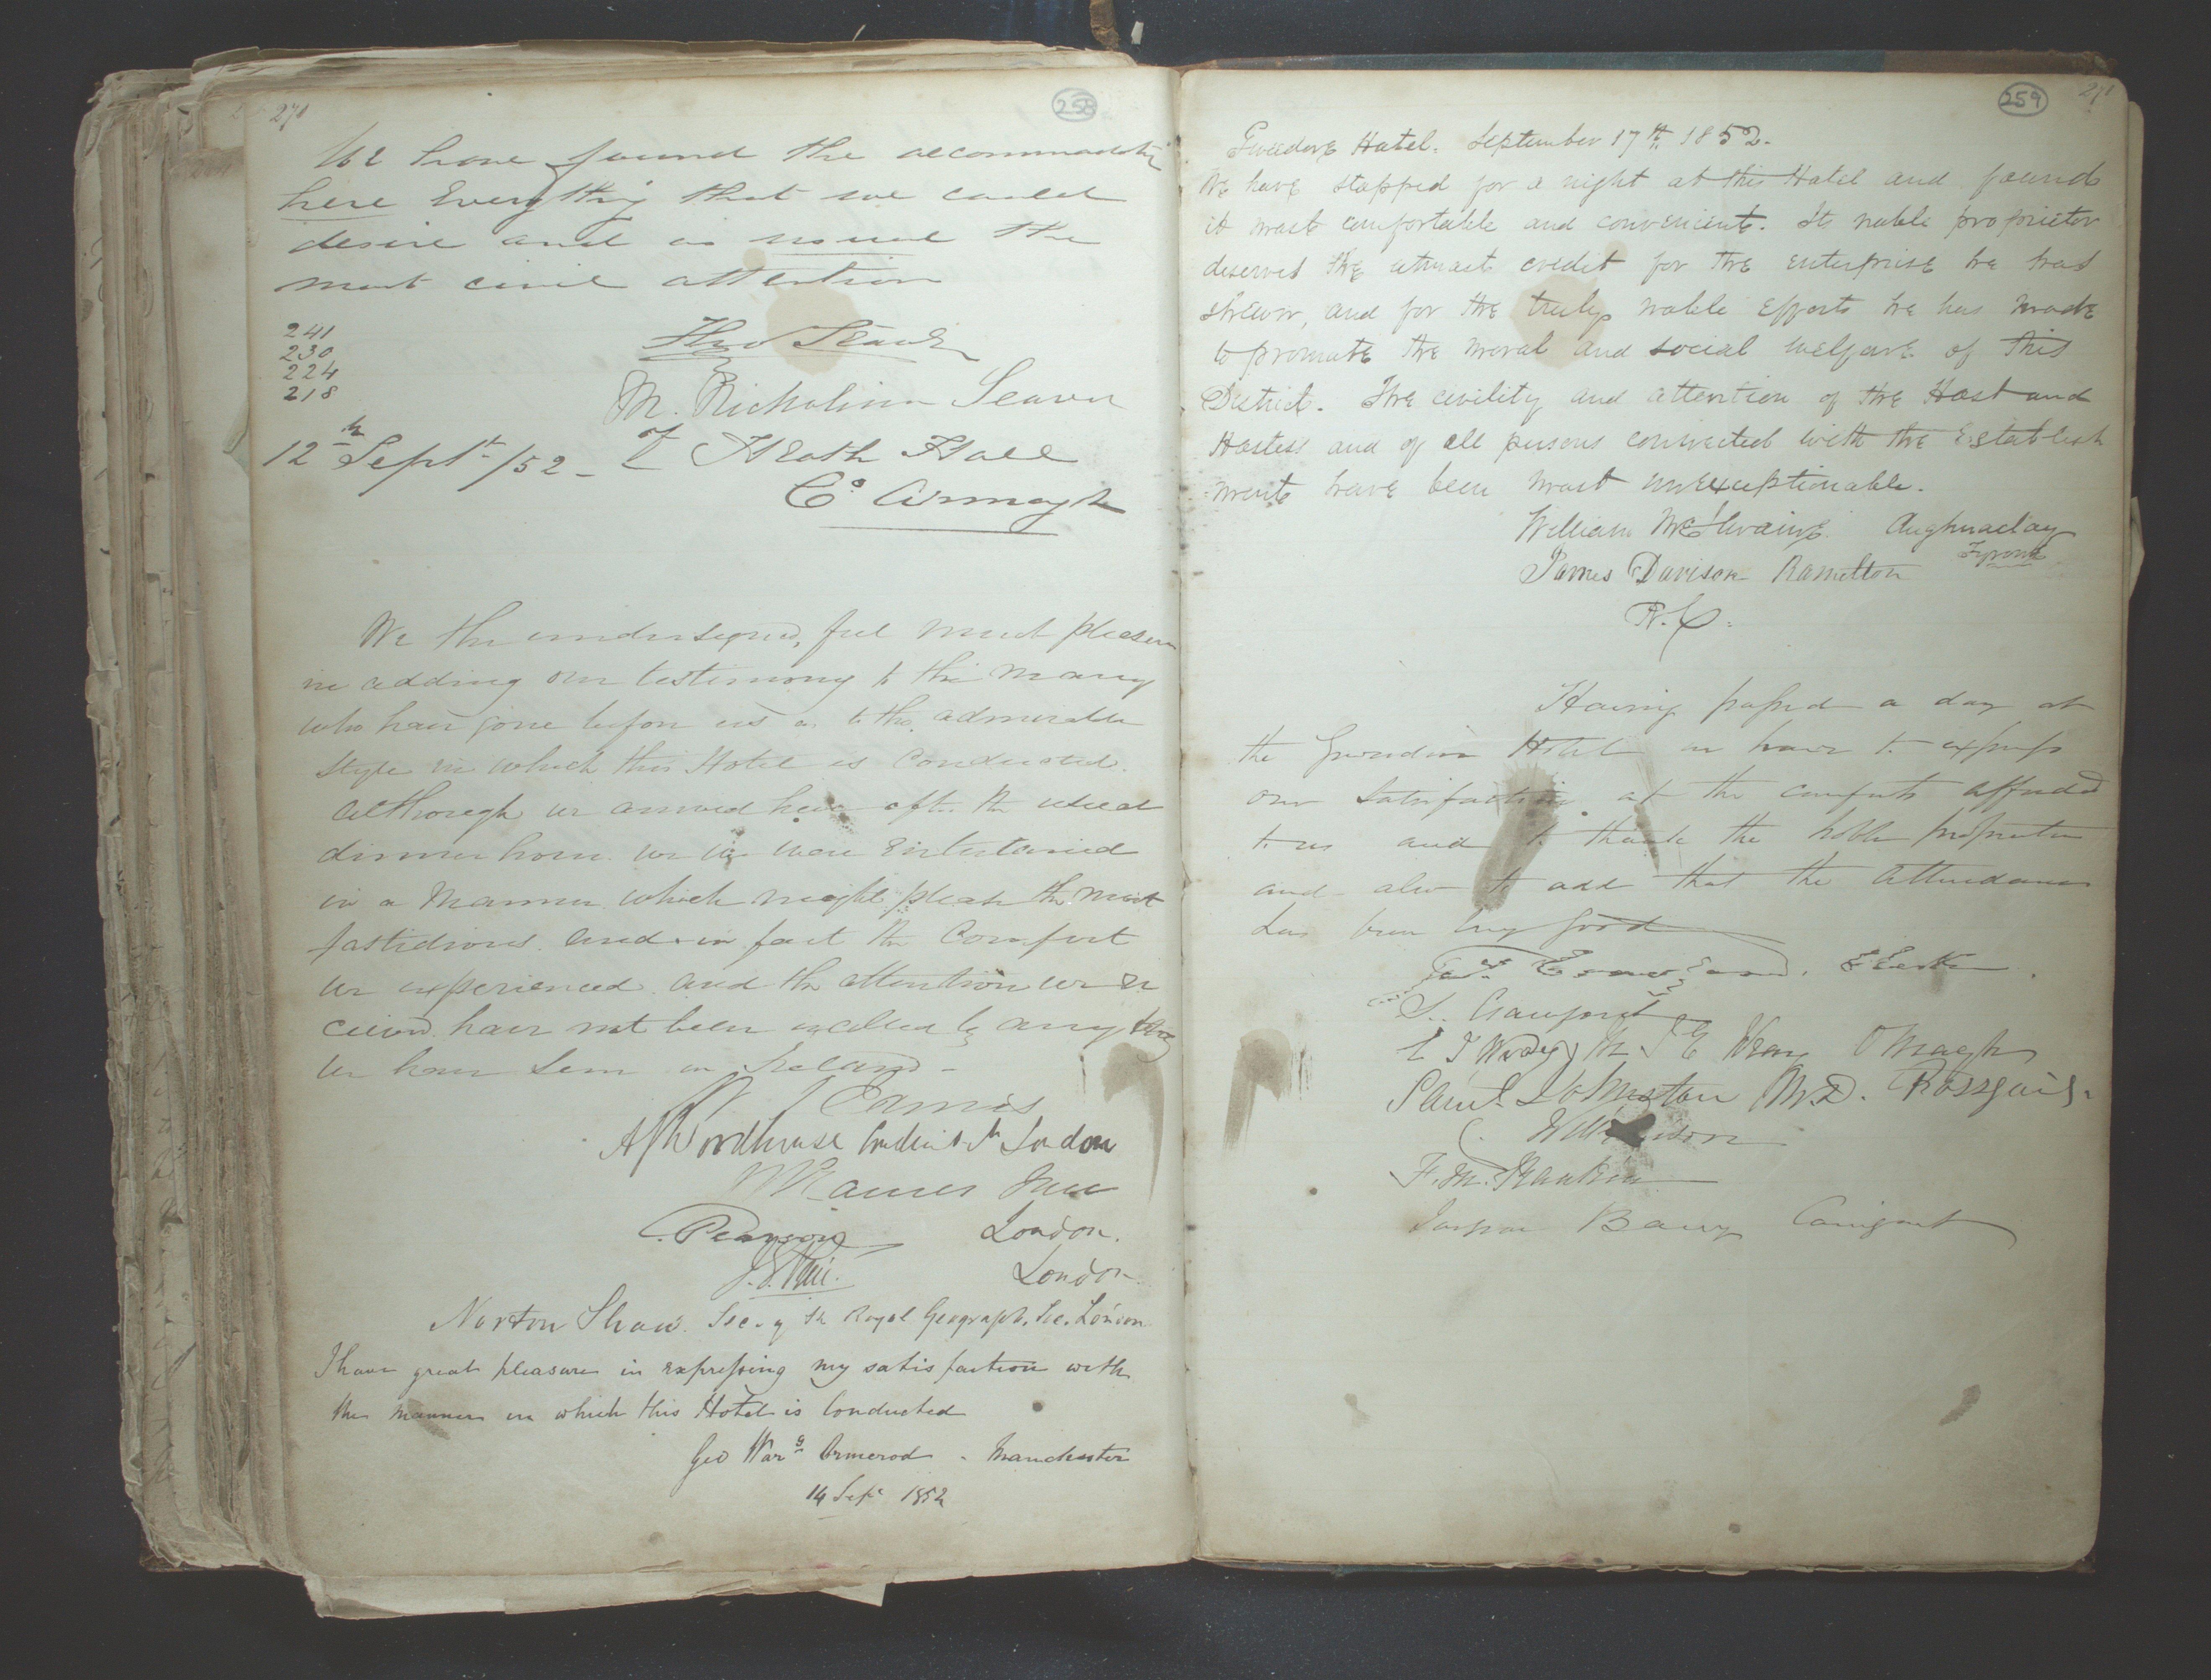 270
258
We have found the accommodatn
here Every thing that we could
desire and as usual the
most civil attention
241
230
224
218
Tho Seaver
M. Nicholson Seaver
12th Septr /52 - of Heath Hall
Co. Armagh
We the undersigned, feel much pleasure
in adding our testimony to the many
who have gone before us as to the admirable
style in which this Hotel is Conducted.
Although we arrived here after the usual
dinner hour we were Entertained
in a Manner which might please the most
fastidious and in fact the Comfort
we experienced and the attention we re
ceived have not been excelled by any thing
we have seen in Ireland -
Eames
Woodhouse London
Eames Junr
C. Pearson London.
London.
Norton Shaw. Sec. of the Royal Geograph. Soc. London
I have great pleasure in expressing my satisfaction with
the manner in which this Hotel is Conducted
Geo Warg Ormerod - Manchester
14 Sepr 1852
259
271
Gweedore Hotel. September 17th 1852.
We have stopped for a night at this Hotel and found
it most comfortable and convenient. Its noble proprietor
deserves the utmost credit for the enterprise he has
shewn, and for the truly noble efforts he has made
to promote the moral and social welfare of this
District. The civility and attention of the Host and
Hostess and of all persons connected with the Establish
ment have been most unexceptionable.
William McIlwaine Aughnacloy
Tyrone
James Davison Ramelton
Having passed a day at
the Gweedore Hotel we have to express
our Satisfaction at the comforts afforded
to us and to thank the noble proprietor
and also to add that the attendance
has been very good
S. Crawford
Omagh
Saml. Johnston M.D.
Wilkinson
F. M. Rankin
Barry